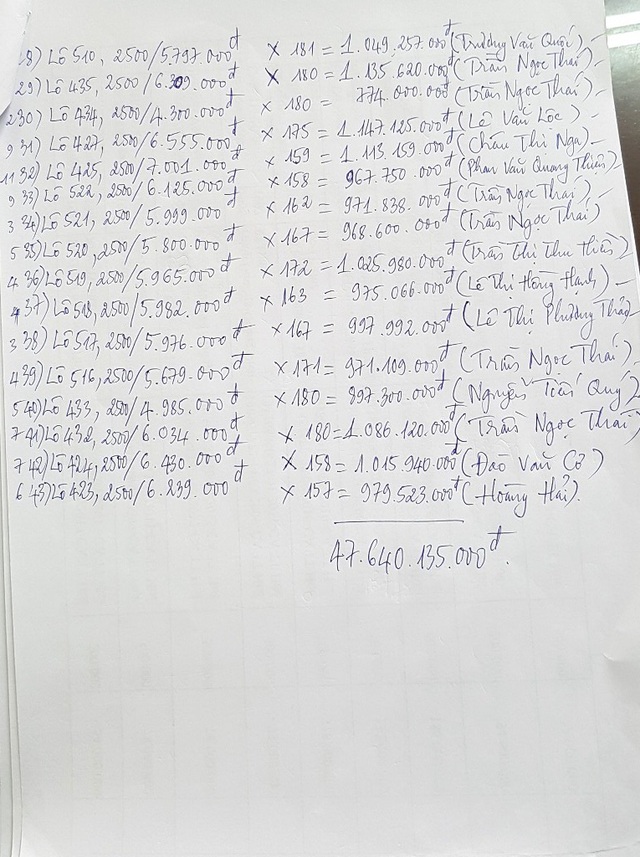 28) Lô 510, 2500/5.797.000đ × 181 = 1.049.257.000đ (Trương Văn Quốc) -
29) Lô 435, 2500/6.309.000đ × 180 = 1.135.620.000đ (Trần Ngọc Thái) -
2 30) Lô 434, 2500/4.300.000đ × 180 = 774.000.000đ (Trần Ngọc Thái) -
9 31) Lô 427, 2500/6.555.000đ × 175 = 1.147.125.000đ (Lê Văn Lộc) -
11 32) Lô 425, 2500/7.001.000đ × 159 = 1.113.159.000đ (Châu Thị Nga) -
9 33) Lô 522, 2500/6.125.000đ × 158 = 967.750.000đ (Phan Văn Quang Thiên)
3 34) Lô 521, 2500/5.999.000đ × 162 = 971.838.000đ (Trần Ngọc Thái)
5 35) Lô 520, 2500/5.800.000đ × 167 = 968.600.000đ (Trần Ngọc Thái)
4 36) Lô 519, 2500/5.965.000đ × 172 = 1.025.980.000đ (Trần Thị Thu Hiền) -
4 37) Lô 518, 2500/5.982.000đ × 163 = 975.066.000đ (Lê Thị Hồng Hạnh) -
3 38) Lô 517, 2500/5.976.000đ × 167 = 997.992.000đ (Lê Thị Phương Thảo)
4 39) Lô 516, 2500/5.679.000đ × 171 = 971.109.000đ (Trần Ngọc Thái) -
5 40) Lô 433, 2500/4.985.000đ × 180 = 897.300.000đ (Nguyễn Tiến Quý)
7 41) Lô 432, 2500/6.034.000đ × 180 = 1.086.120.000đ (Trần Ngọc Thái)
7 42) Lô 424, 2500/6.430.000đ × 158 = 1.015.940.000đ (Đào Văn Cở)
6 43) Lô 423, 2500/6.239.000đ × 157 = 979.523.000đ (Hoàng Hải).
47.640.135.000đ.